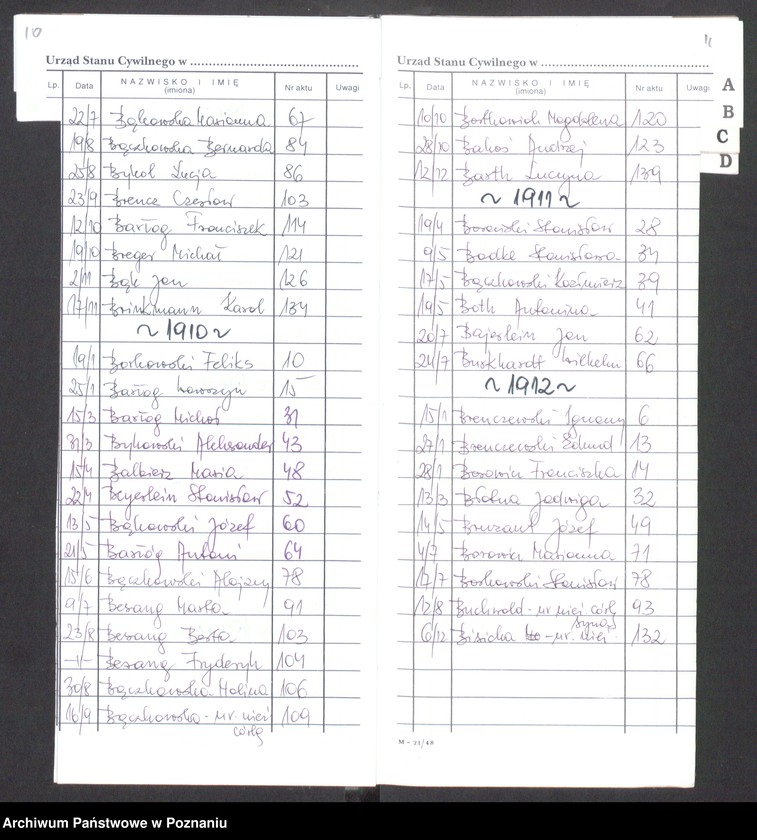 10
Urząd Stanu Cywilnego w
Lp. Data NAZWISKO I IMIĘ (imiona) Nr aktu Uwagi
22/7 Bąkowska Marianna 67
19/8 Bączkowska Bernarda 84
25/8 Bykol Łucja 86
23/9 Brence Czesław 103
12/10 Barłog Franciszek 114
19/10 Breger Michał 121
2/11 Bąk Jan 126
17/11 Brinkmann Karol 134
~ 1910 ~
19/1 Borkowski Feliks 10
25/1 Barłog Wawrzyn 15
15/3 Barłog Michał 31
31/3 Bykowski Aleksander 43
15/4 Balbierz Maria 48
22/4 Beyerlein Stanisław 52
13/5 Bąkowski Józef 60
21/5 Barłóg Antoni 64
15/6 Bączkowski Alojzy 78
9/7 Besang Marta 91
23/8 Besang Berta 103
-"- Besang Fryderyk 104
30/8 Bączkowska Halina 106
16/9 Bączkowska - ur. nież. córkę 109
11
Urząd Stanu Cywilnego w
Lp. Data NAZWISKO I IMIĘ (imiona) Nr aktu Uwagi
10/10 Bartkowiak Magdalena 120
28/10 Bakoś Andrzej 123
12/12 Barth Lucyna 139
~ 1911 ~
19/4 Borowski Stanisław 28
9/5 Badke Stanisława 34
17/5 Bączkowski Kazimierz 39
19/5 Both Antonina 41
20/7 Bajerlein Jan 62
24/7 Burkhardt Wilhelm 66
~ 1912 ~
15/1 Brenczewski Ignacy 6
27/1 Brenczewski Edmund 13
28/1 Borowiak Franciszka 14
13/3 Błotna Jadwiga 32
14/5 Bruzant Józef 49
4/7 Borowiak Marianna 71
17/7 Borkowski Stanisław 78
12/8 Buchwald - ur. nież. córkę 93
6/12 Bisicha - ur. nież. syna 132
M - 21/48
A
B
C
D
Archiwum Państwowe w Poznaniu